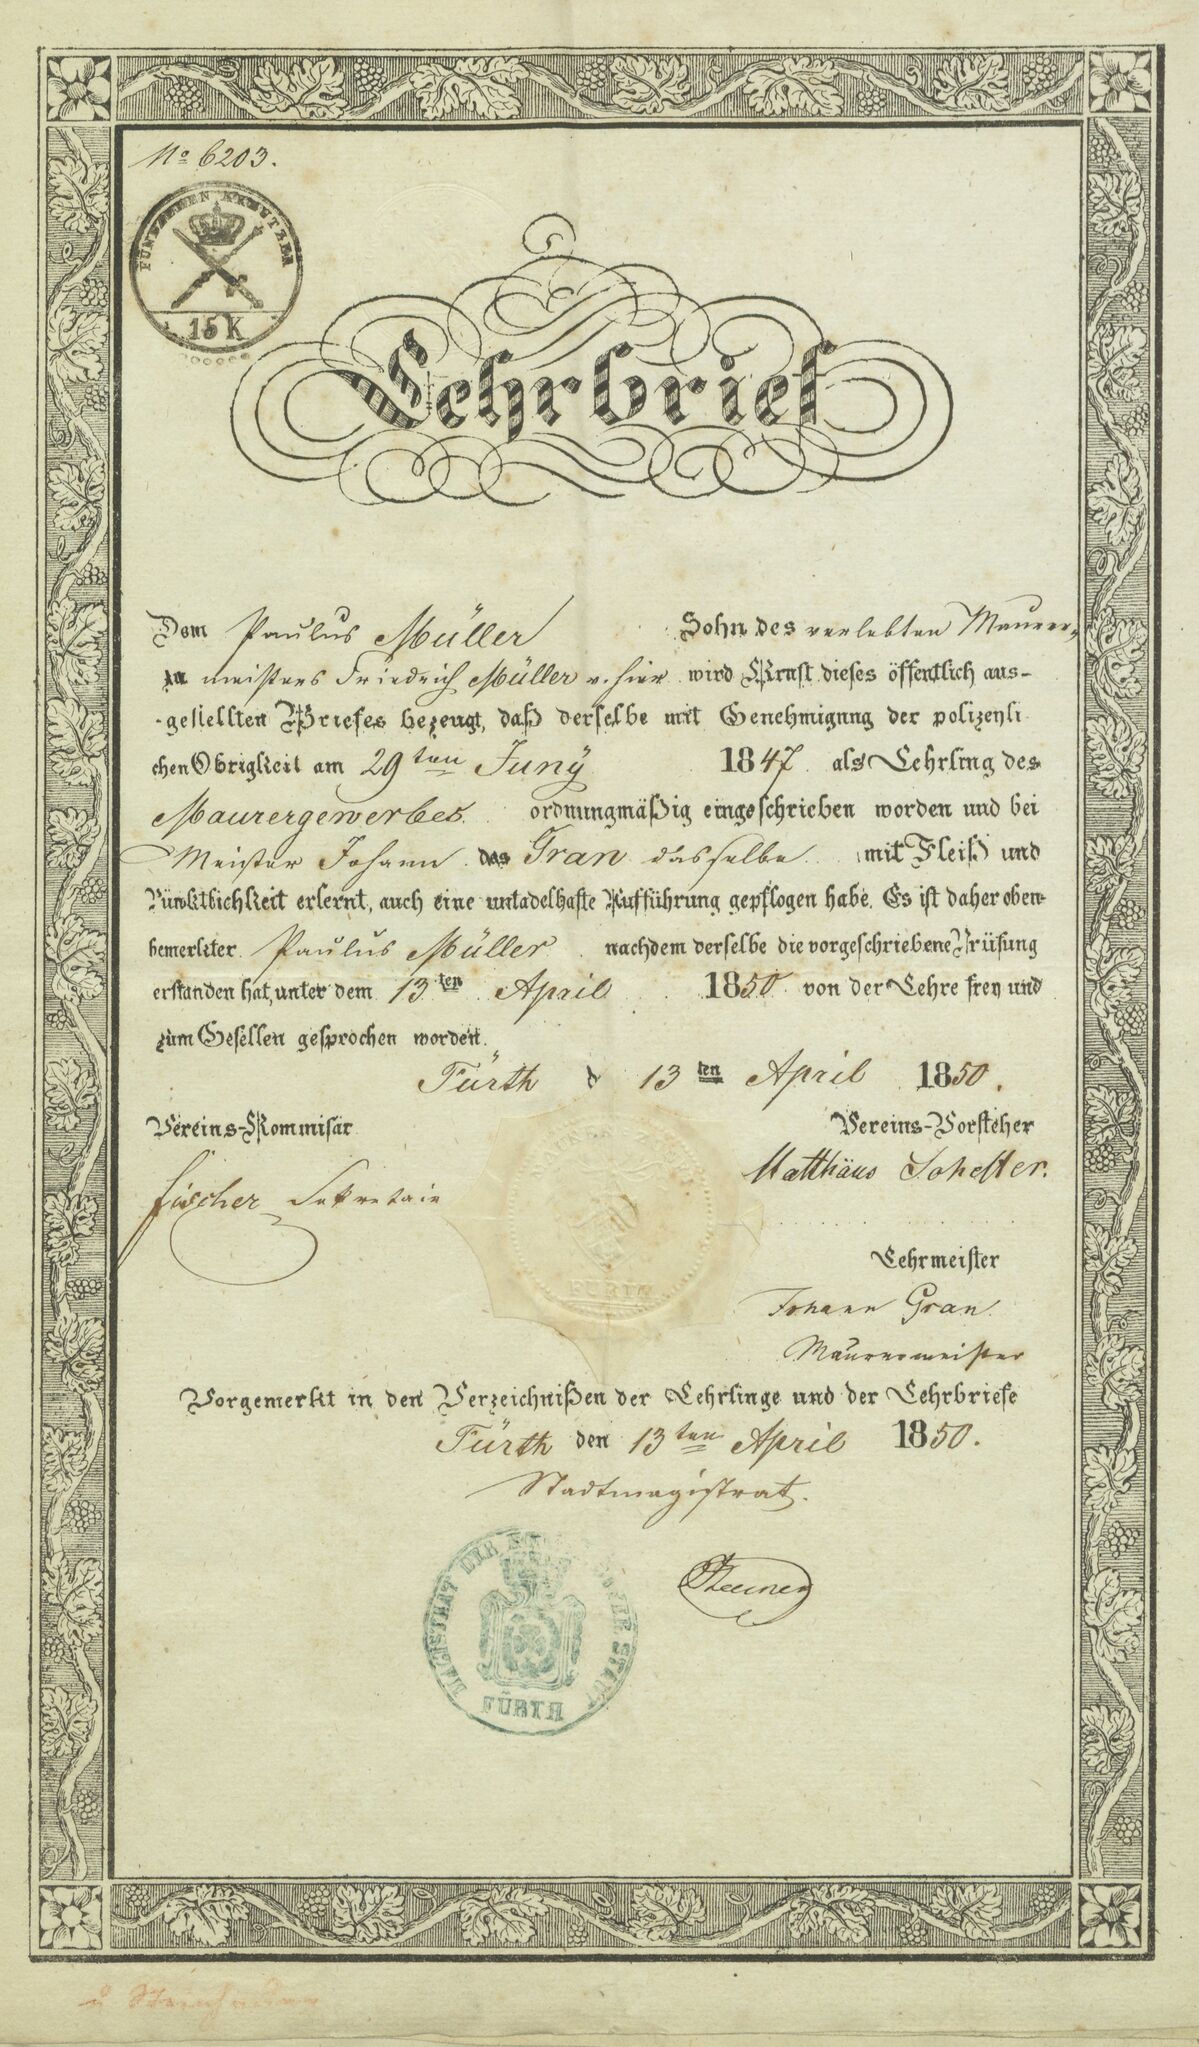 No 6203.
FÜNFZEHEN KREUTZER
15 K
Lehrbrief
Dem Paulus Müller Sohn des verlebten Maurer-
meisters Friedrich Müller v. hier wird Krafft dieses öffentlich aus-
gestellten Briefes bezeugt, daß derselbe mit Genehmigung der polizeyli
chen Obrigkeit am 29ten Juny 1847 als Lehrling des
Maurergewerbes ordnungmäßig eingeschrieben worden und bei
Meister Johann Gran dasselbe mit Fleiß und
Pünktlichkeit erlernt, auch eine untadelhafte Aufführung gepflogen habe. Es ist daher oben-
bemerkter Paulus Müller nachdem derselbe die vorgeschriebene Prüfung
erstanden hat, unter dem 13ten April 1850 von der Lehre frey und
zum Gesellen gesprochen worden.
Fürth d 13ten April 1850.
Vereins-Kommisär
Vereins-Vorsteher
Fischer Sekretair
Matthäus
Lehrmeister
Johann Gran
Maurermeister
FÜRTH
Vorgemerkt in den Verzeichnißen der Lehrlinge und der Lehrbriefe
Fürth den 13ten April 1850.
Stadtmagistrat.
MAGISTRAT DER STADT
FÜRTH